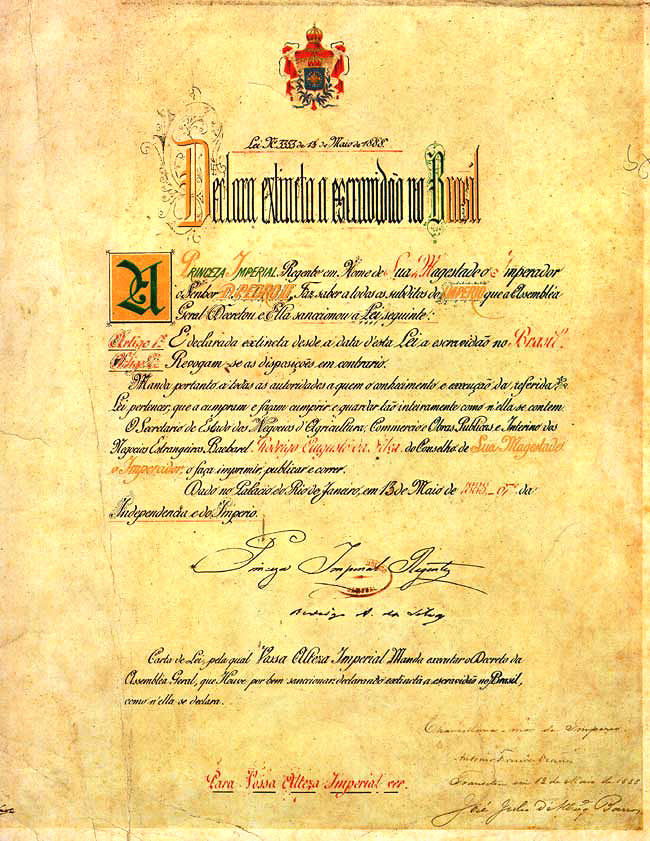 Lei Nº 3353 de 13 de Maio de 1888.
Declara extincta a escravidão no Brasil
A PRINCEZA IMPERIAL Regente em Nome de Sua Magestade o Imperador
o Senhor D. PEDRO II, Faz saber a todos os subditos do IMPERIO que a Assembléa
Geral Decretou e Ella sanccionou a Lei seguinte:
Artigo 1º É declarada extincta desde a data d'esta Lei a escravidão no Brasil.
Artigo 2º Revogam-se as disposições em contrario.
Manda portanto a todas as autoridades a quem o conhecimento e execução da referida
Lei pertencer, que a cumpram e façam cumprir e guardar tão inteiramente como n'ella se contem.
O Secretario de Estado dos Negocios d'Agricultura, Commercio e Obras Publicas e Interino dos
Negocios Estrangeiros Bacharel Rodrigo Augusto da Silva do Conselho de Sua Magestade
o Imperador, o faça imprimir, publicar e correr.
Dado no Palacio do Rio de Janeiro, em 13 de Maio de 1888 - 67º da
Independencia e do Imperio.
Princeza Imperial Regente
Rodrigo A. da Silva
Carta de Lei, pela qual Vossa Alteza Imperial Manda executar o Decreto da
Assembléa Geral, que Houve por bem sanccionar declarando extincta a escravidão no Brasil,
como n'ella se declara.
Para Vossa Alteza Imperial ver.
Chancellaria-mór do Imperio
Antonio Ferreira Vianna
Transitou em 13 de Maio de 1888
José Julio d'Albuqº Barros